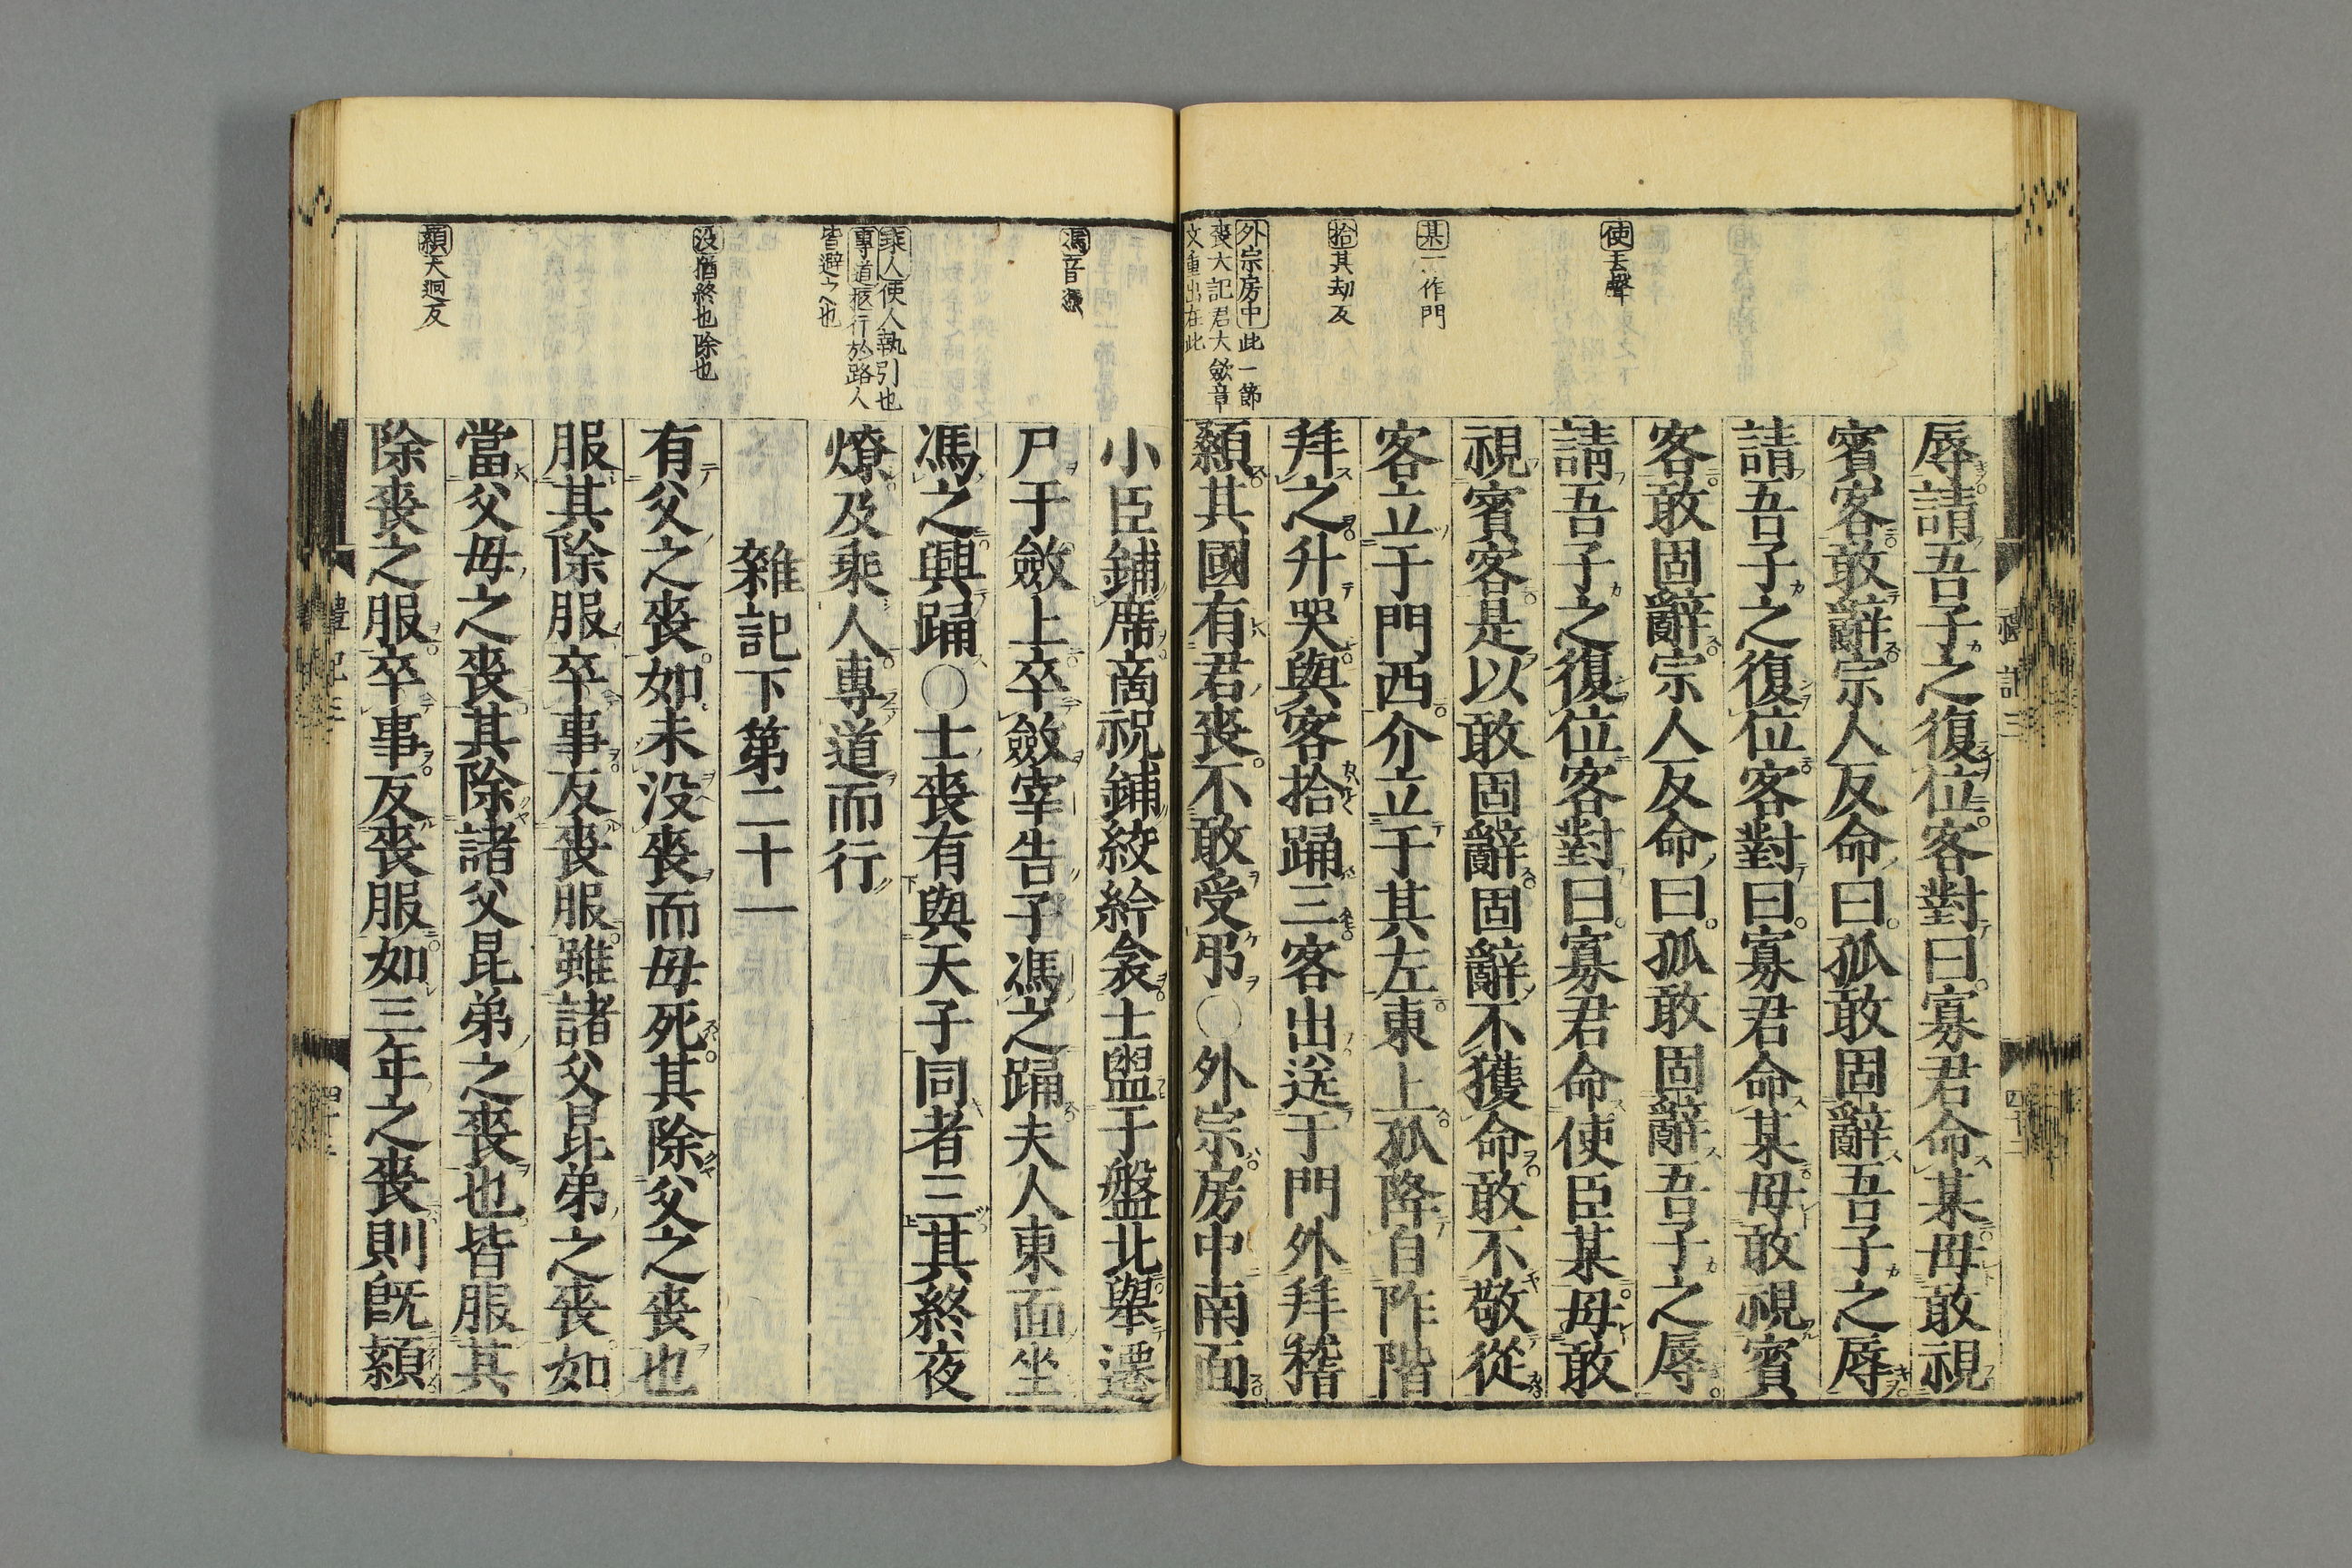 使去聲
某一作門
拾其劫反
外宗房中此一節
喪大記君大斂章
文重出在此
辱請吾子之復位客對曰寡君命某毋敢視
賓客敢辭宗人反命曰孤敢固辭吾子之辱
請吾子之復位客對曰寡君命某毋敢視賓
客敢固辭宗人反命曰孤敢固辭吾子之辱
請吾子之復位客對曰寡君命使臣某毋敢
視賓客是以敢固辭固辭不獲命敢不敬從
客立于門西介立于其左東上孤降自阼階
拜之升哭與客拾踊三客出送于門外拜稽
顙其國有君喪不敢受弔○外宗房中南面
馮音憑
乘人使人執引也
專道柩行於路人
皆避之也
没猶終也除也
顙犬迥反
小臣鋪席商祝鋪絞紟衾士盥于盤北舉遷
尸于斂上卒斂宰告子馮之踊夫人東面坐
馮之興踊○士喪有與天子同者三其終夜
燎及乘人專道而行
雜記下第二十一
有父之喪如未没喪而母死其除父之喪也
服其除服卒事反喪服雖諸父昆弟之喪如
當父母之喪其除諸父昆弟之喪也皆服其
除喪之服卒事反喪服如三年之喪則既顙
禮記三